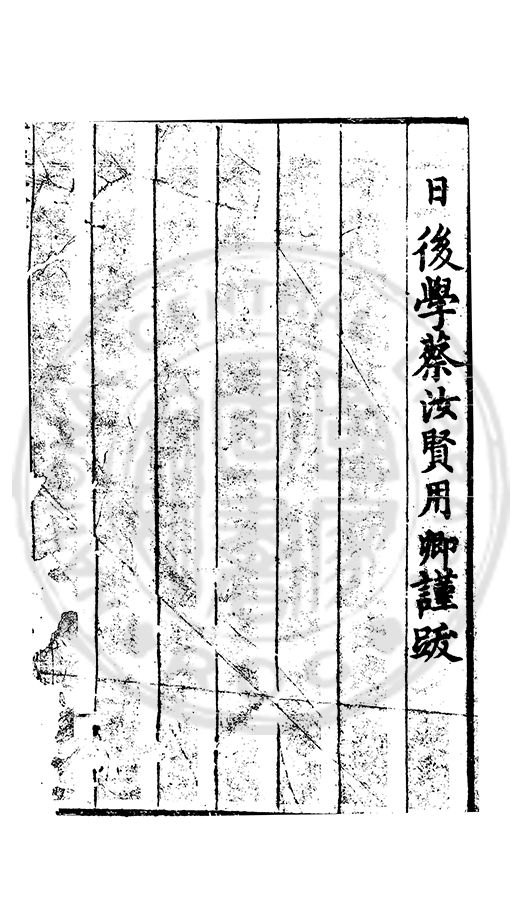 日後學蔡汝賢用卿謹跋